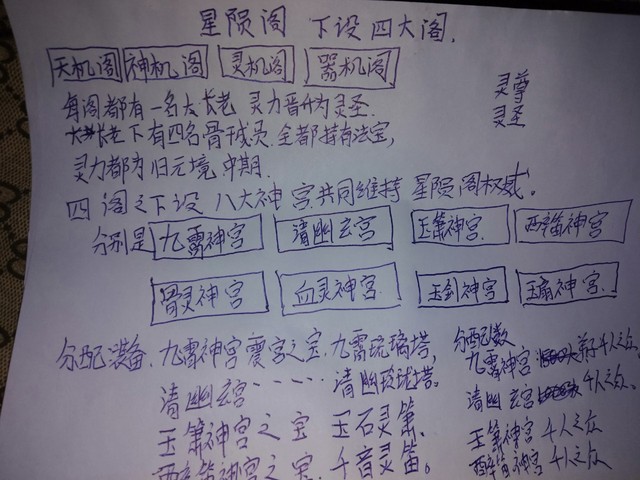 星陨阁 下设四大阁.
天机阁 神机阁 灵机阁 器机阁
灵尊
灵圣
每阁都有一名大长老 灵力晋升为灵圣.
长老下有四名骨干成员.全都持有法宝,
灵力都为归元境中期.
四阁之下设八大神宫.共同维持星陨阁权威.
分别是 九霄神宫 清幽玄宫 玉箫神宫 醉笛神宫
骨灵神宫 血灵神宫 玉剑神宫 玉扇神宫
分配装备.九霄神宫震宫之宝.九霄琉璃塔,
清幽玄宫 ---- 清幽玲珑塔.
玉箫神宫之宝 玉石灵箫.
醉笛神宫之宝 千音灵笛。
分配数
九霄神宫 千人之众.
清幽玄宫 千人之众.
玉箫神宫 千人之众
醉笛神宫 千人之众